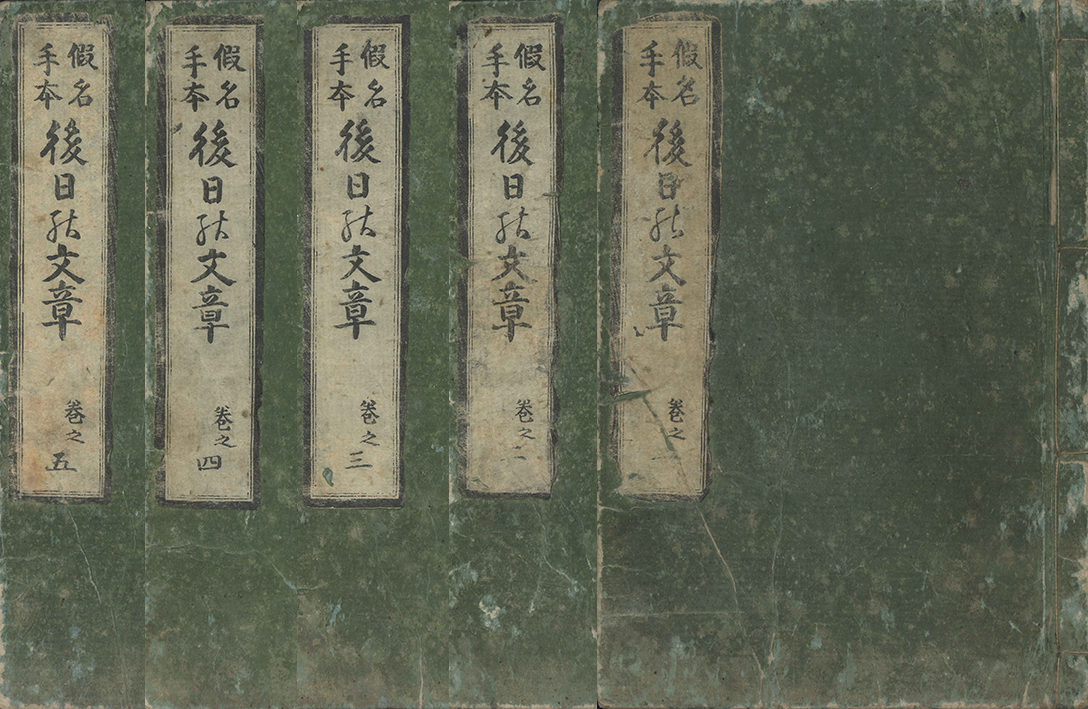 假名
手本
後日の文章
巻之一
假名
手本
後日の文章
巻之二
假名
手本
後日の文章
巻之三
假名
手本
後日の文章
巻之四
假名
手本
後日の文章
巻之五